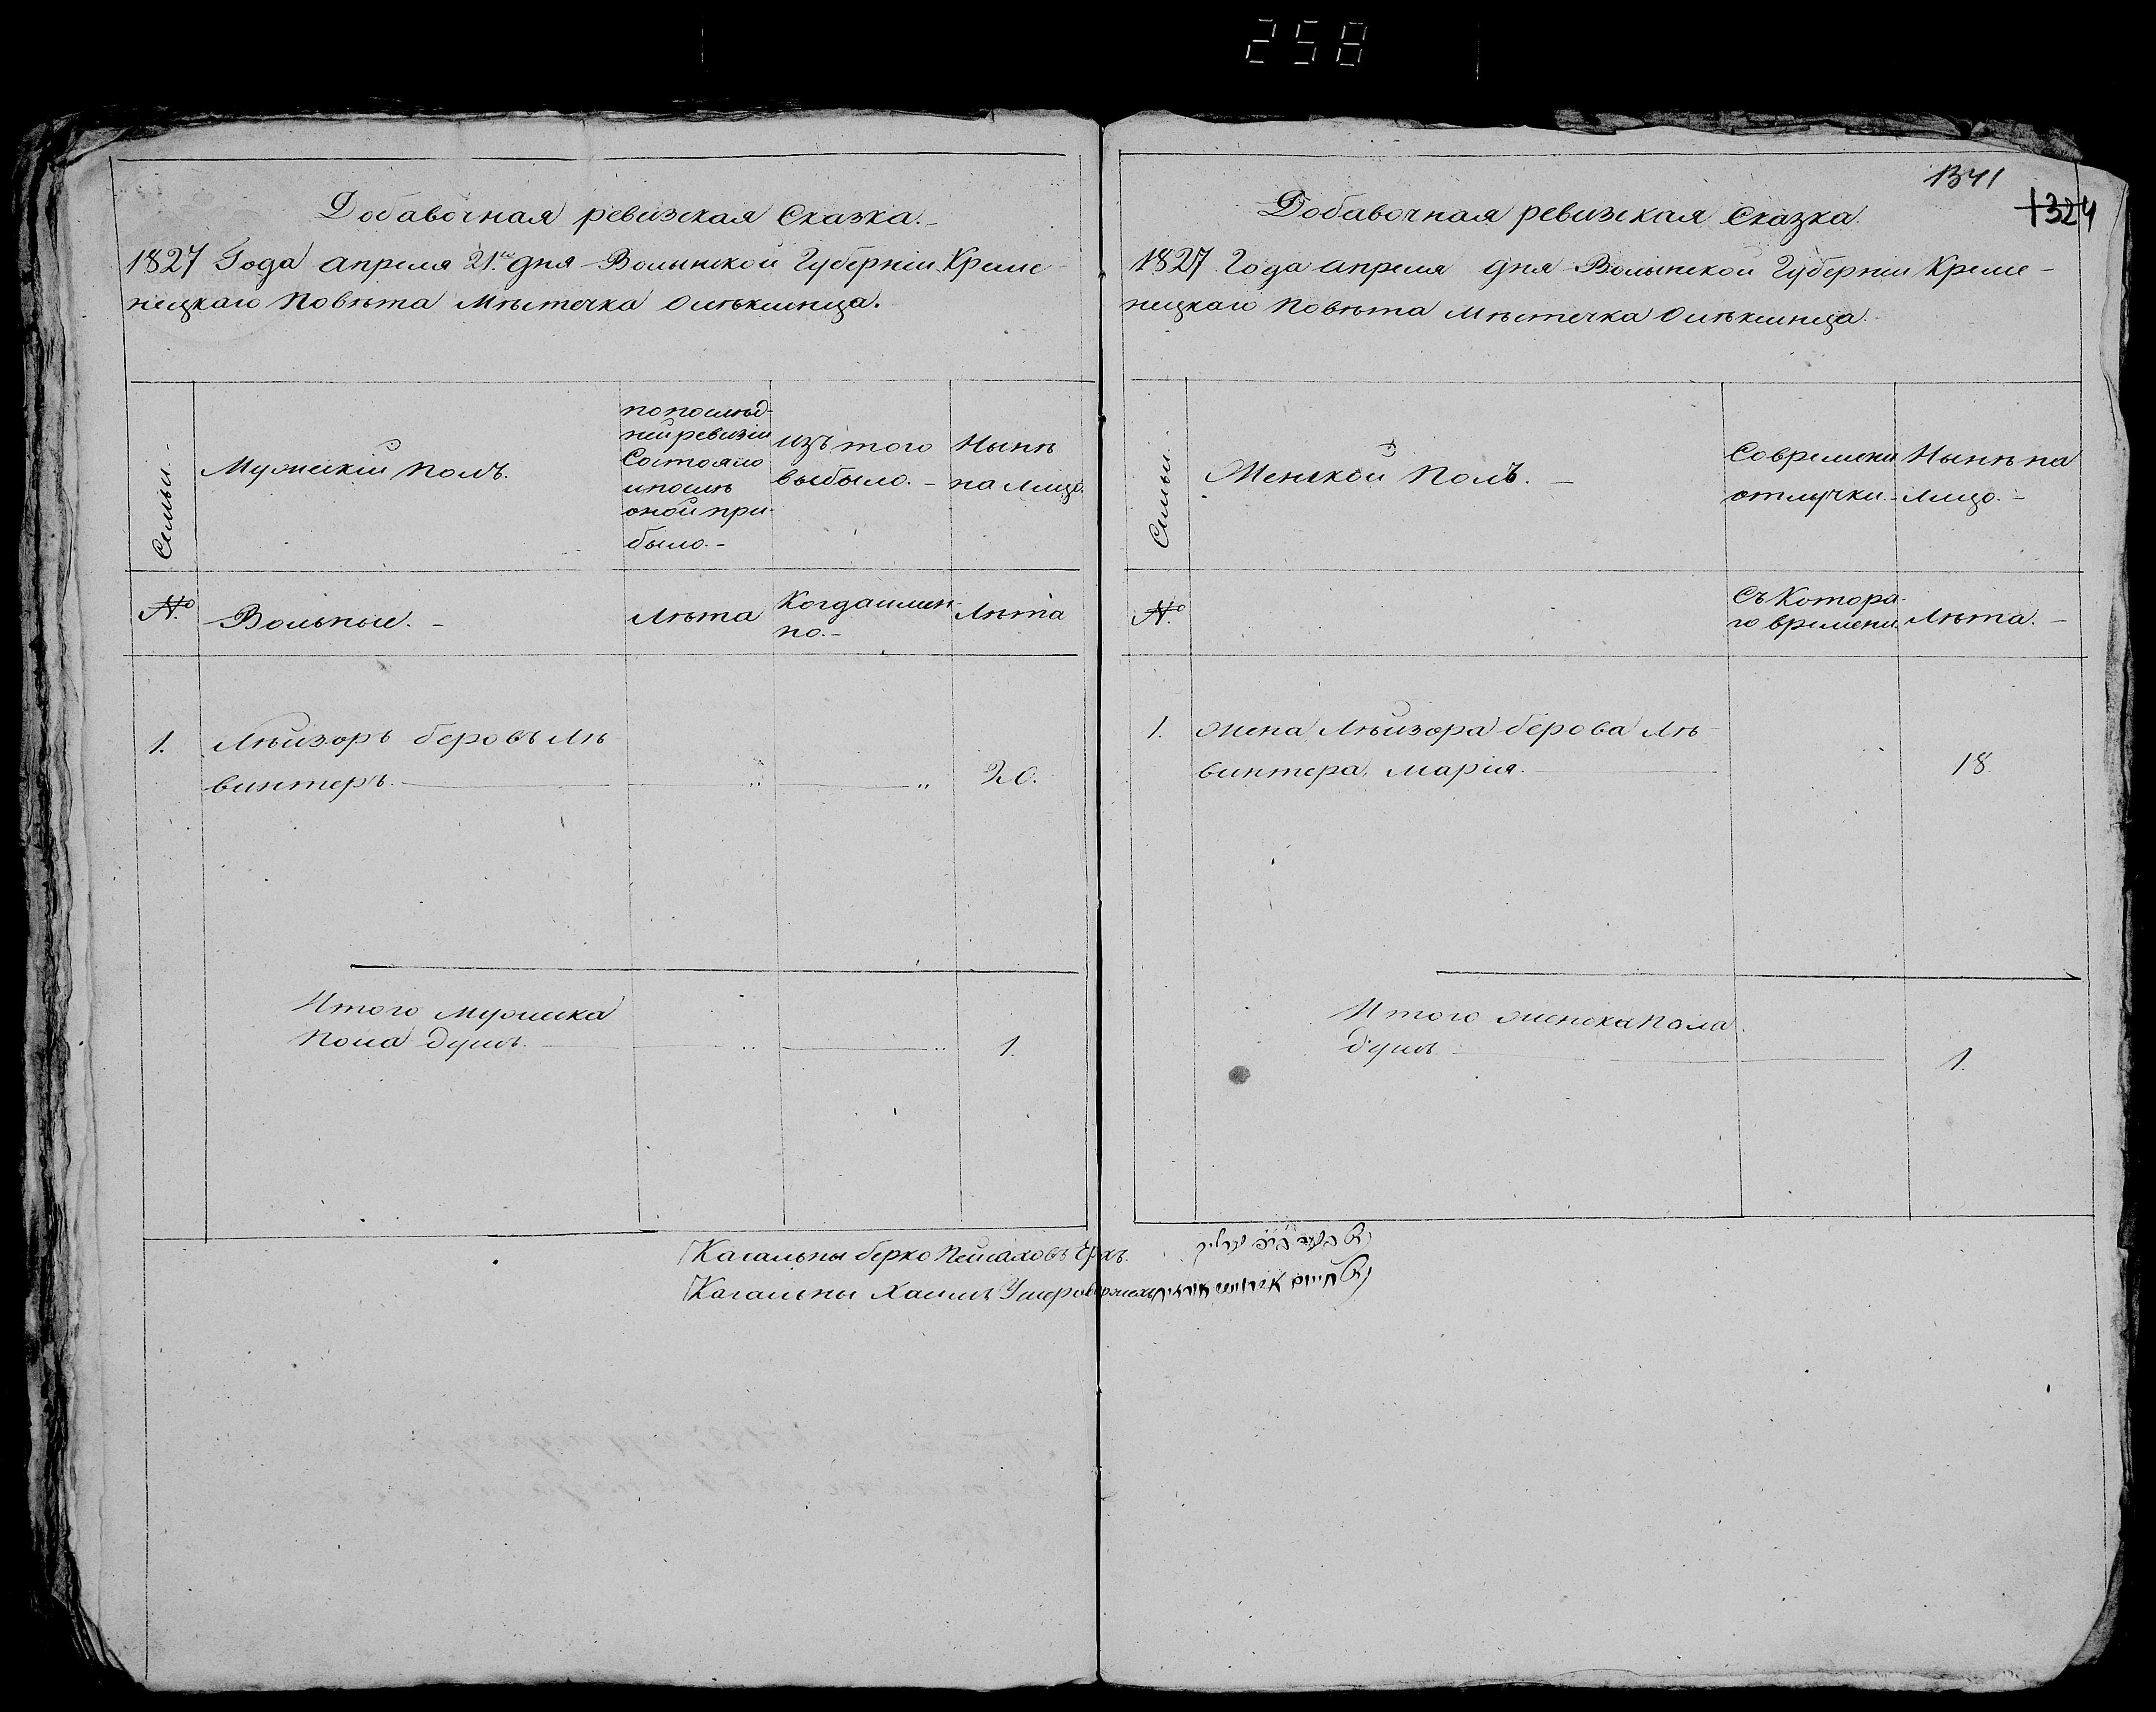 258
Добавочная ревизская Сказка.
1827 Года апреля 21го дня Волынской Губерніи Креме-
нецкаго Повѣта Мѣстечка Олѣксинца.
Семьи.
Мужескій полъ.
по послѣд-
ней ревизіи
Состояло
и послѣ
оной при-
было.
Изъ того
выбыло.
Нынѣ
на лицо.
№
Вольные.
Лѣта
Когда имен-
но.
Лѣта
1.
Лѣйзоръ беровъ Лѣ-
винтеръ.
20.
Итого мужеска
пола душъ.
1.
Кагальны берко Пейсаховъ
Кагальны Хаимъ
1341
1324
Добавочная ревизская Сказка.
1827 Года апреля дня Волынской Губерніи Креме-
нецкаго Повѣта Мѣстечка Олѣксинца.
Семьи.
Женской полъ.
Со времени
отлучки.
Нынѣ на
лицо.
№
Съ Котора-
го времени.
Лѣта.
1.
жена Лѣйзора берова Лѣ-
винтера, Марія.
18.
Итого женска пола
душъ
1.